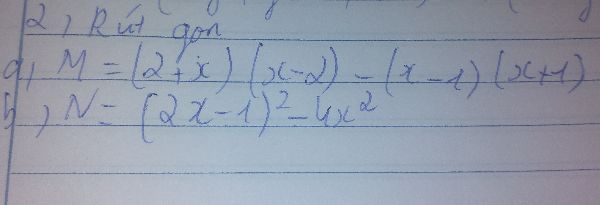 2, Rút gọn
a, M = (2+x) (x-2) - (x-1) (x+1)
b, N = (2x-1)² - 4x²